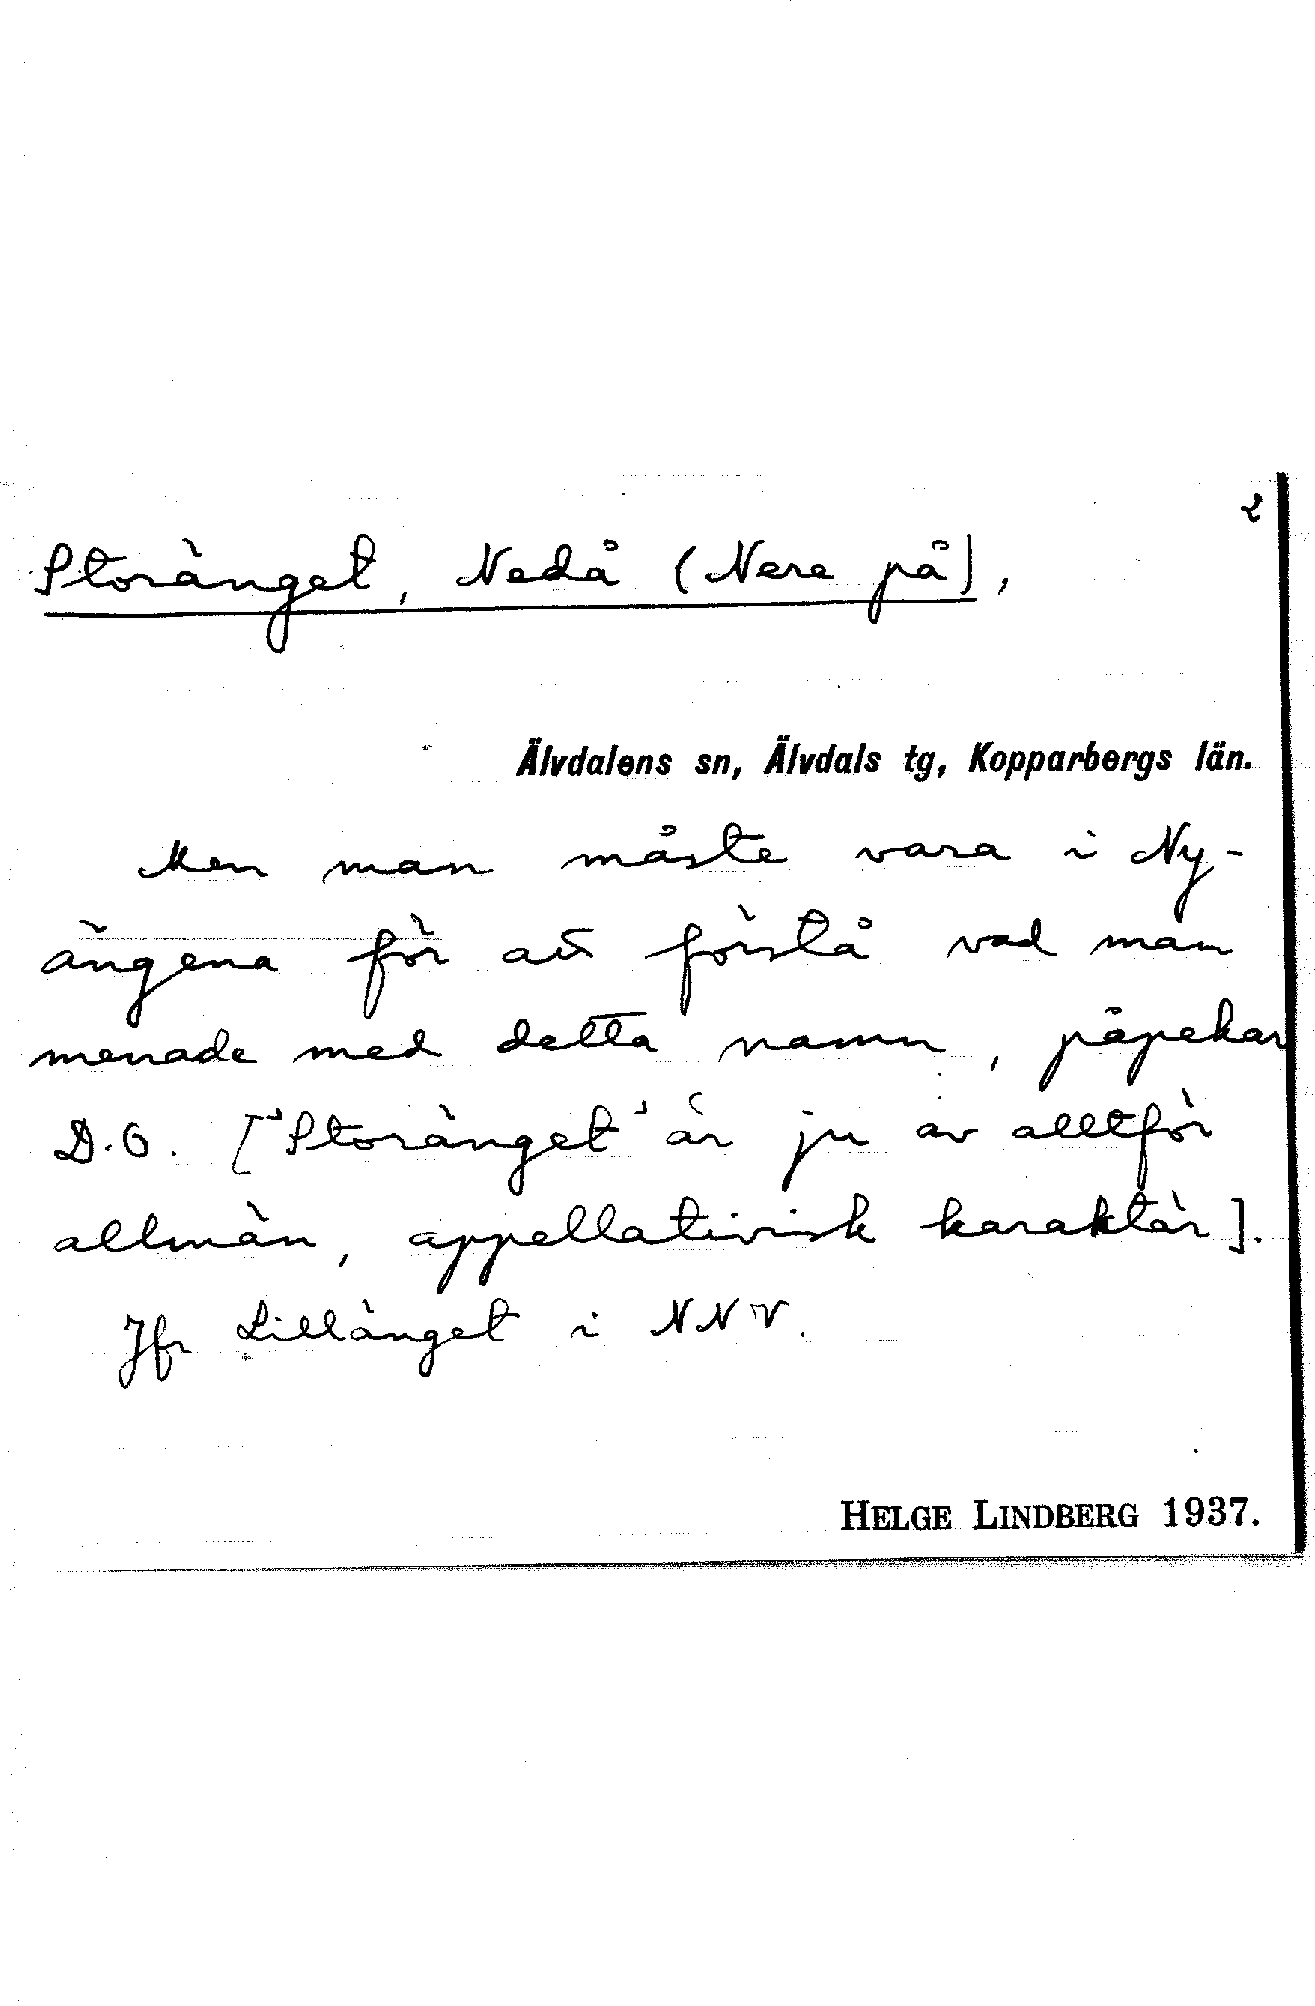 2
Storänget, Nedå (Nere på),
Älvdalens sn, Älvdals tg, Kopparbergs län.
Men man måste vara i Ny-
ängena för att förstå vad man
menade med detta namn, påpekar
D.O. ["Storänget" är ju av alltför
allmän, appellativisk karaktär].
Jfr Lillänget i NNV.
HELGE LINDBERG 1937.